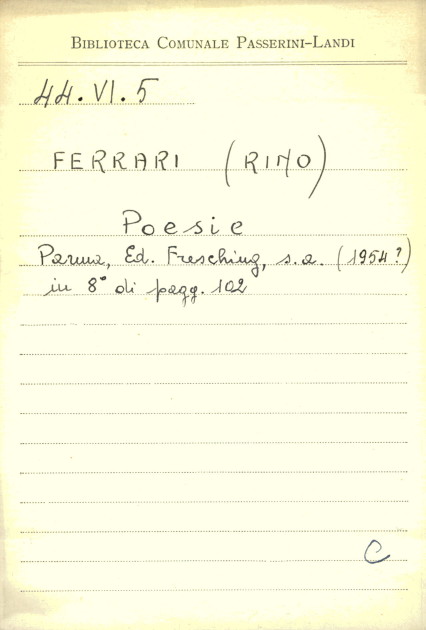 BIBLIOTECA COMUNALE PASSERINI-LANDI
44.VI.5
FERRARI (RINO)
Poesie
Parma, Ed. Fresching, s.a. (1954?)
in 8° di pagg. 102
C